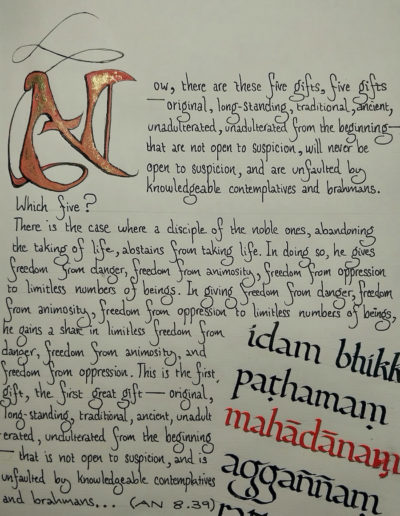 Now, there are these five gifts, five gifts
— original, long-standing, traditional, ancient,
unadulterated, unadulterated from the beginning —
that are not open to suspicion, will never be
open to suspicion, and are unfaulted by
knowledgeable contemplatives and brahmans.
Which five?
There is the case where a disciple of the noble ones, abandoning
the taking of life, abstains from taking life. In doing so, he gives
freedom from danger, freedom from animosity, freedom from oppression
to limitless numbers of beings. In giving freedom from danger, freedom
from animosity, freedom from oppression to limitless numbers of beings,
he gains a share in limitless freedom from
danger, freedom from animosity, and
freedom from oppression. This is the first
gift, the first great gift — original,
long-standing, traditional, ancient, unadult
erated, unadulterated from the beginning
— that is not open to suspicion, and is
unfaulted by knowledgeable contemplatives
and brahmans... (AN 8.39)
idam bhikk
paṭhamaṃ
mahādānaṃ
aggaññaṃ